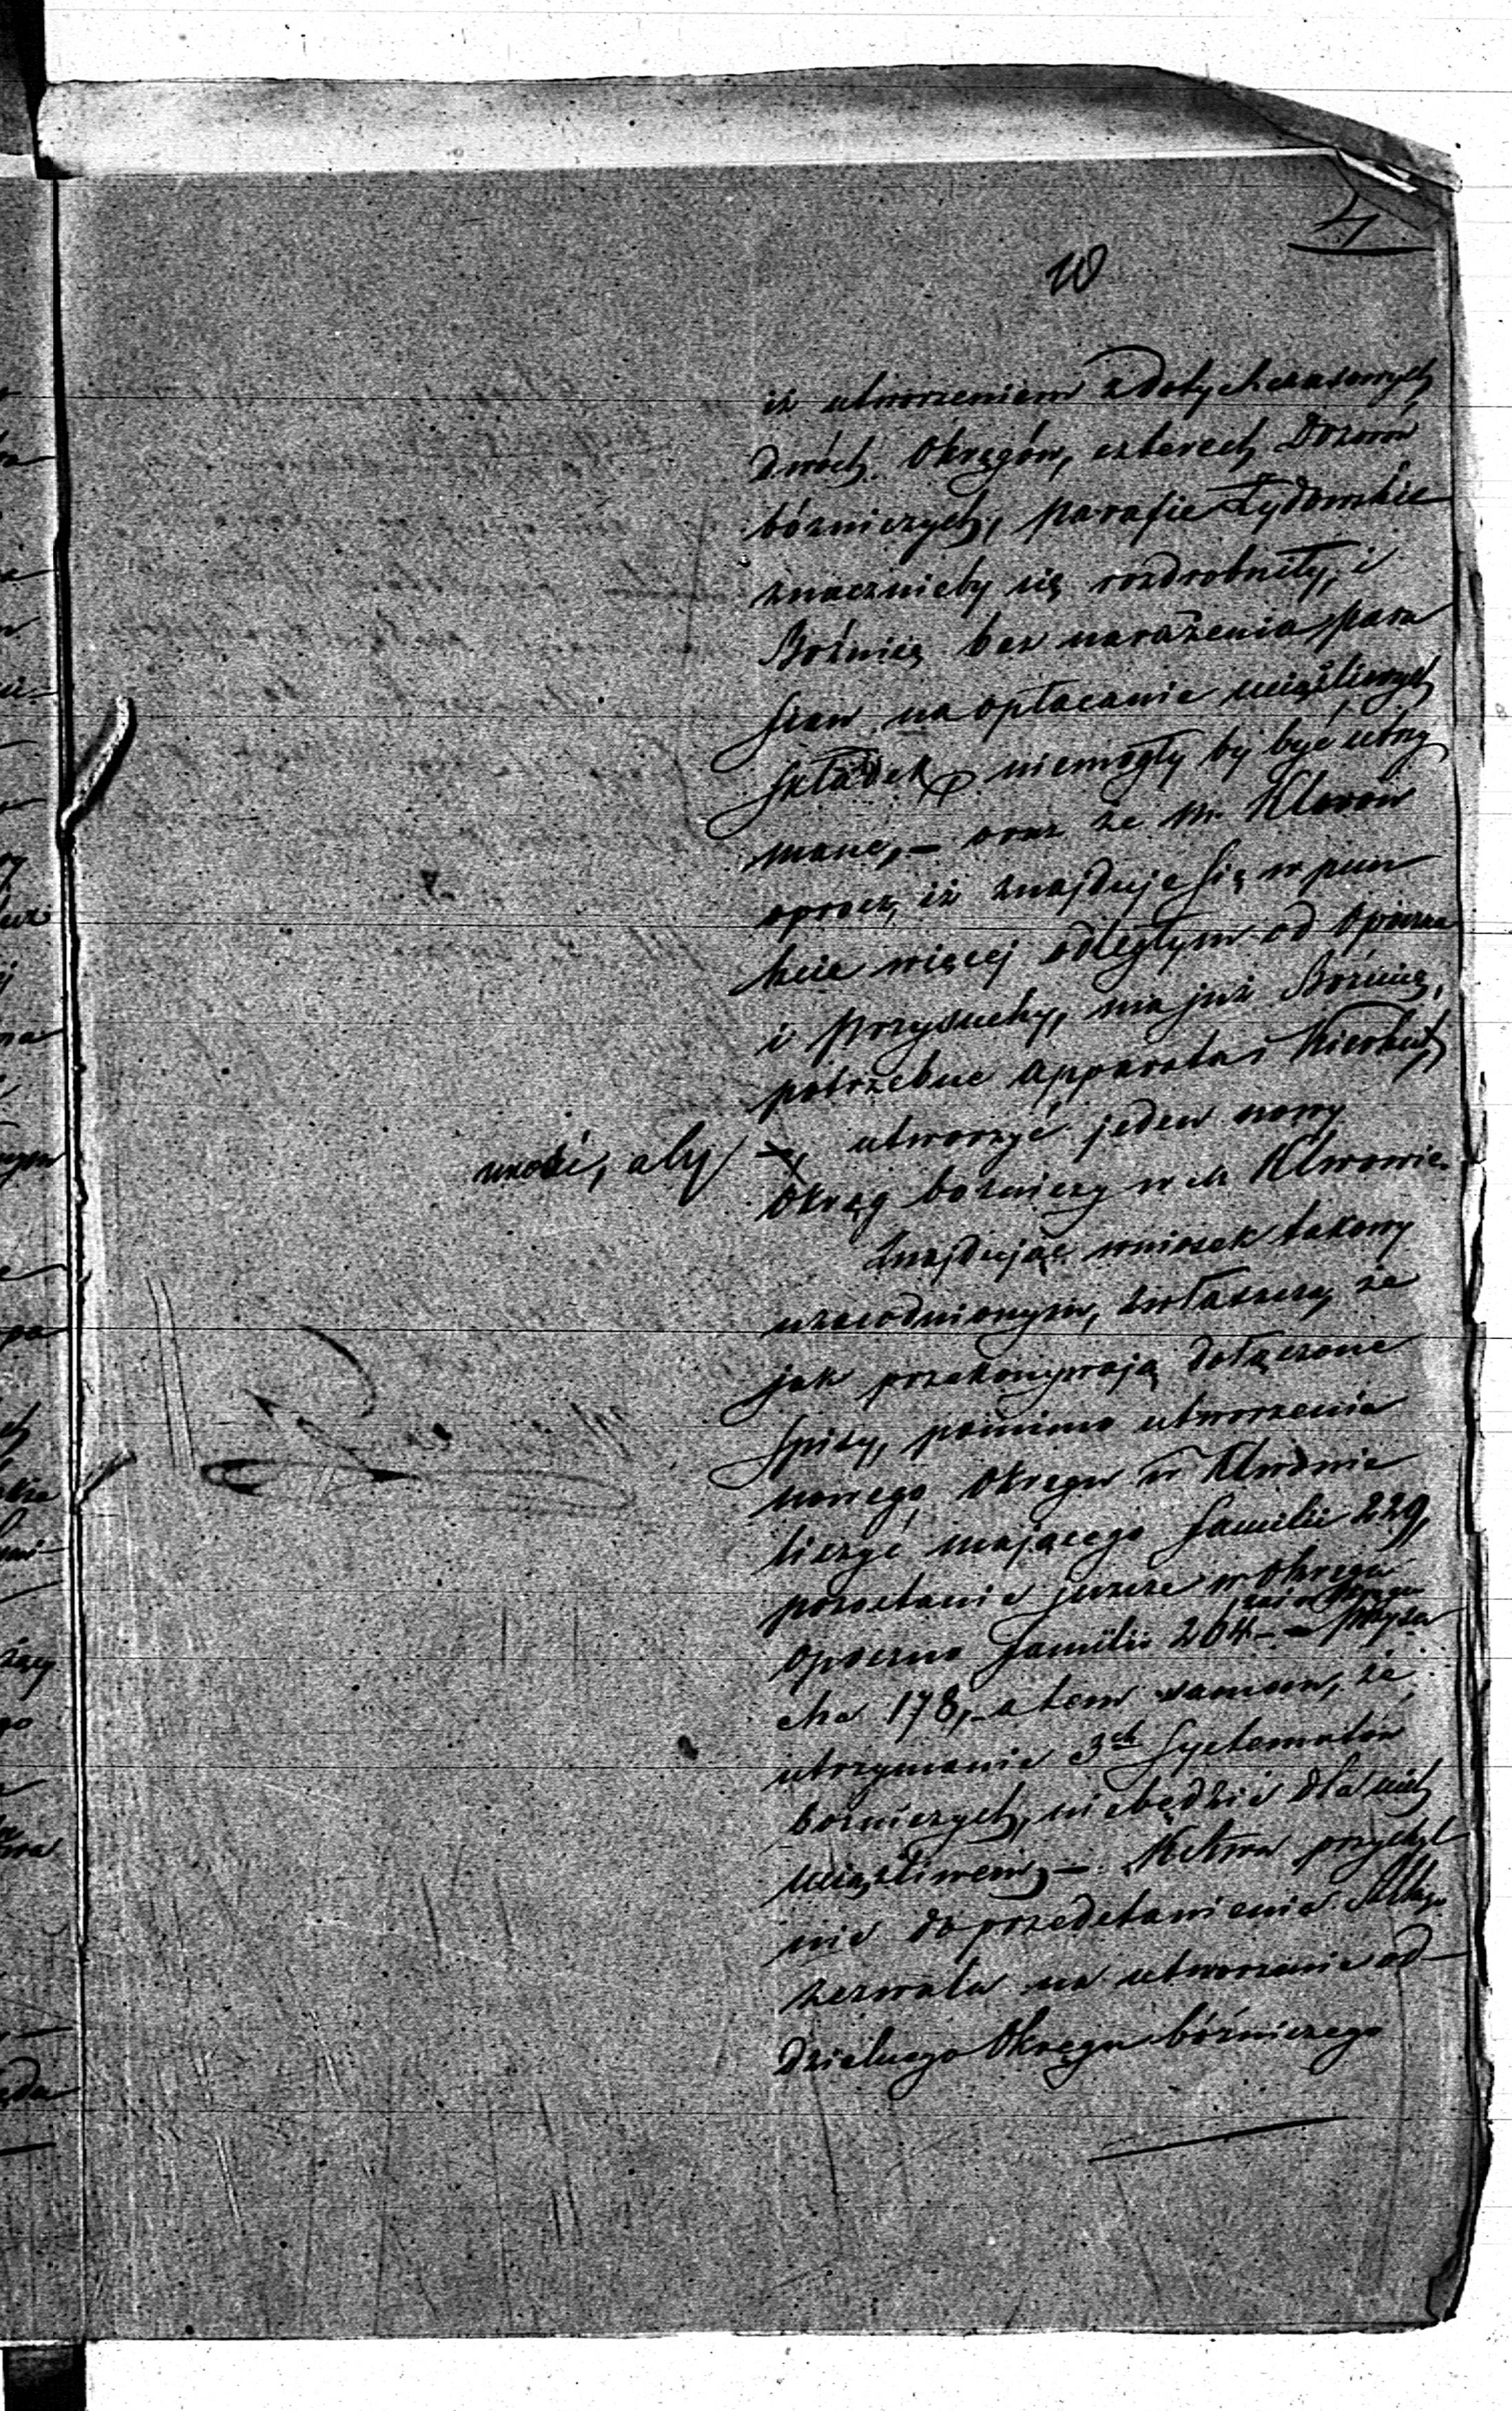 4
10
iż utworzeniem z dotychczasowych
dwóch Okręgów, czterech Dozorów
bóżniczych, parafie Żydowskie
znacznieby się rozdrobniły, i
Bóżnice bez narażenia para
fian na opłacanie uciążliwych
składek niemogły by być utrzy
mane, – oraz że m. Klwow
oprocz, iż znajduje się w pun
kcie więcej odległym od Opoczna
i Przysuchy, ma już Bóźnicę,
potrzebne apparata i Kierkut,
wnosi, aby utworzyć jeden nowy
Okrąg bożniczy w m Klwowie.
Znajdując wniosek takowy
uzasodnionym, zwłaszcza, że
jak przekonywają dołączone
spisy, pomimo utworzenia
nowego Okręgu w Klwowie
liczyć mającego familii 229,
pozostanie jeszcze w Okręgu
Opoczno familii 204 – zaś w Okręgu Przysu
cha 178, a tem samem, że
utrzymanie 3ch Systematów
bożniczych, niebędzie dla nich
uciążliwem, –
nie do przedstawienia
zezwala na utworzenie od-
dzielnego Okręgu bóżniczego